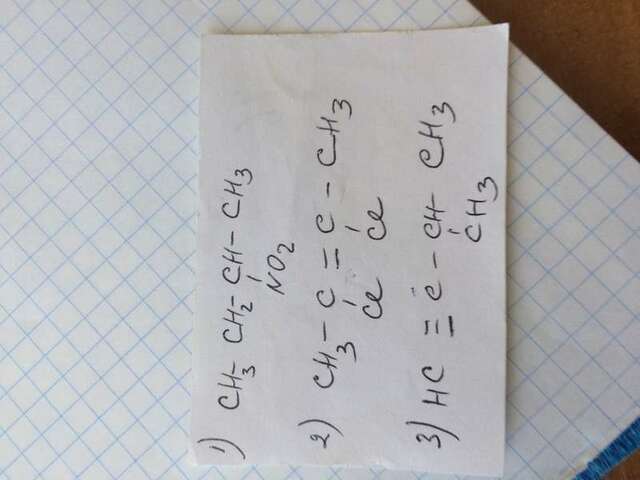 1) CH3- CH2- CH- CH3
NO2
2) CH3- C = C - CH3
Cl Cl
3) HC ≡ C - CH- CH3
CH3